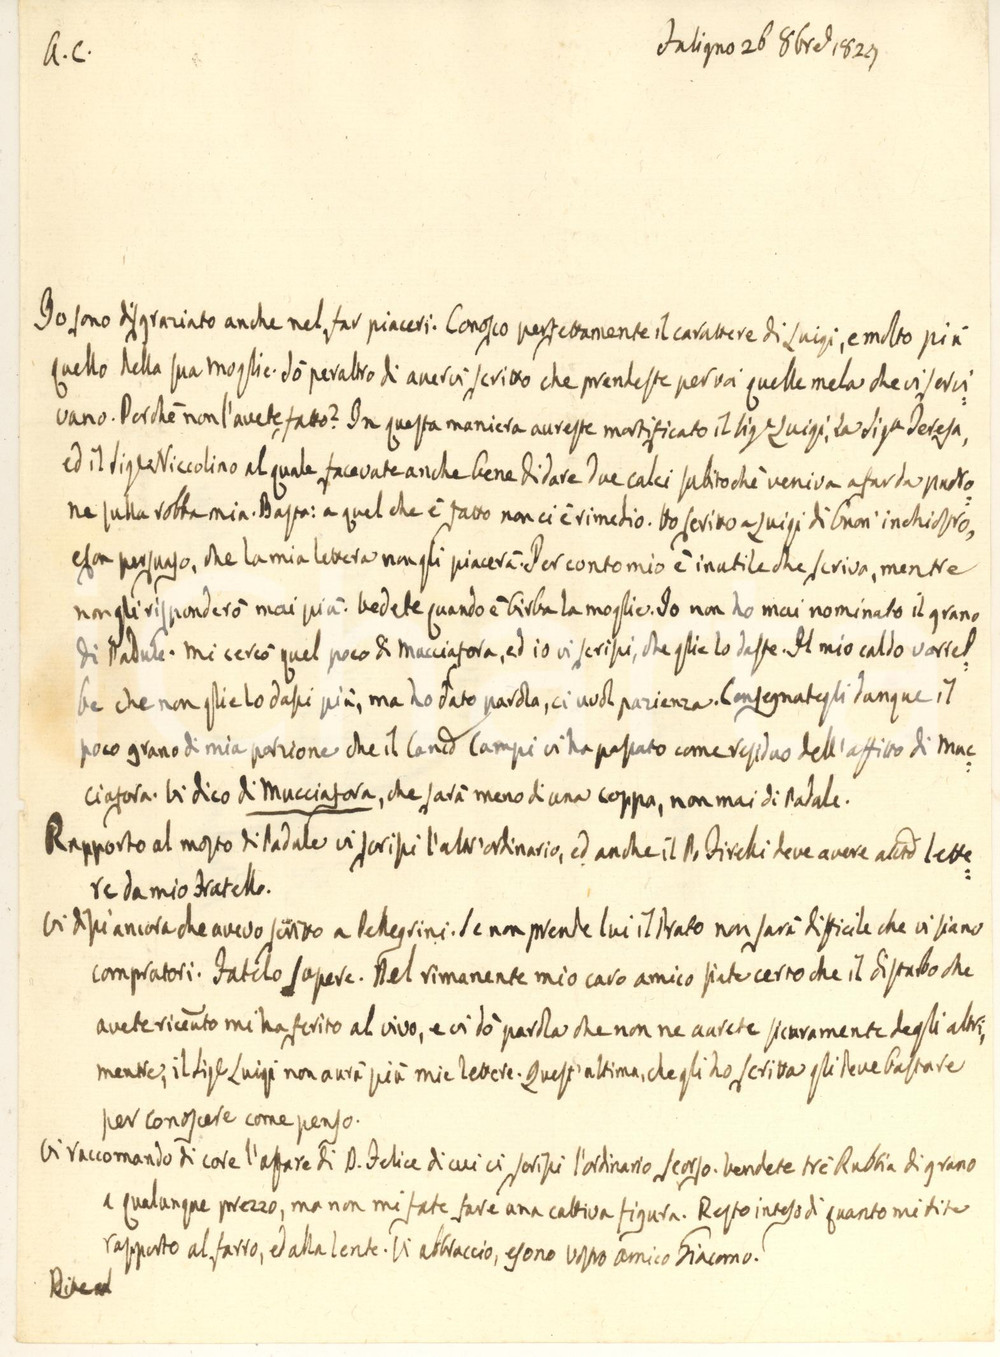 A. C.
Foligno 26 8bre 1829
Io sono disgraziato anche nel far piaceri. Conosco perfettamente il carattere di Luigi, e molto più
quello della sua Moglie. Sò peraltro di avervi scritto che prendeste per voi quelle mela che vi servi=
vano. Perchè non l'avete fatto? In questa maniera avreste mortificato il Sigr Luigi, la Siga Teresa,
ed il Sigr Niccolino al quale facevate anche bene di dare due calci subitochè veniva a far da padro=
ne sulla robba mia. Basta: a quel che è fatto non ci è rimedio. Ho scritto a Luigi di buon' inchiostro,
e son persuaso, che la mia lettera non gli piacerà. Per conto mio è inutile che scriva, mentre
non gli risponderò mai più. Vedete quando è birba la moglie. Io non ho mai nominato il grano
di Padule. Mi cercò quel poco di Mucciafora, ed io vi scrissi, che glie lo daste. Il mio caldo vorreb=
be che non glie lo dassi più, ma ho dato parola, ci vuol pazienza. Consegnategli dunque il
poco grano di mia porzione che il Canco Campi vi ha passato come residuo dell'affitto di Muc=
ciafora. Vi dico di Mucciafora, che sarà meno di una coppa, non mai di Padule.
Rapporto al mosto di Padule vi scrissi l'altr'ordinario, ed anche il P. Fischi deve avere avuto lette=
re da mio Fratello.
Vi dissi ancora che avevo scritto a Pellegrini. Se non prende lui il Prato non sarà difficile che vi siano
compratori. Fatelo sapere. Nel rimanente mio caro amico siate certo che il disturbo che
avete ricevuto mi ha ferito al vivo, e vi dò parola che non ne avrete sicuramente degli altri,
mentre, il Sigr Luigi non avrà più mie lettere. Quest'ultima, che gli ho scritta gli deve bastare
per conoscere come penso.
Vi raccomando di core l'affare di D. Felice di cui vi scrissi l'ordinario scorso. Vendete trè Rubbia di grano
a qualunque prezzo, ma non mi fate fare una cattiva figura. Resto inteso di quanto mi dite
rapporto al farro, ed alla lente. Vi abbraccio, e sono vostro amico Giacomo.